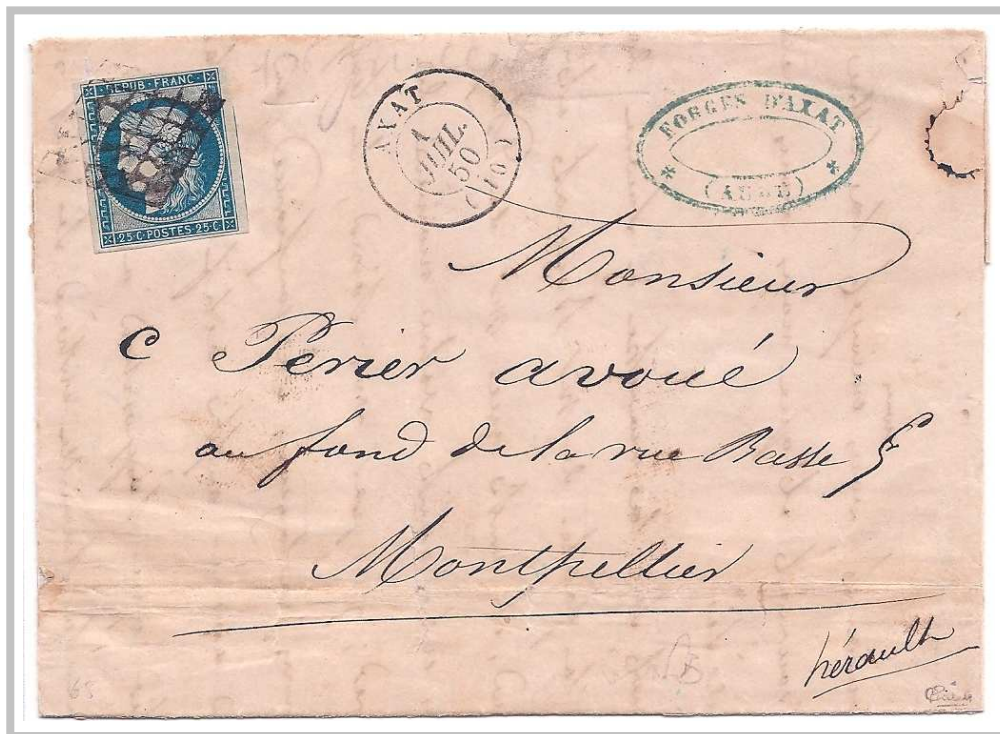 REPUB·FRANC·
25·C·POSTES·25·C
AXAT
1
JUIL.
50
(10)
FORGES D'AXAT
* (AUDE) *
Monsieur
C Périer avoué
au fond de la rue Basse
Montpellier
hérault
65